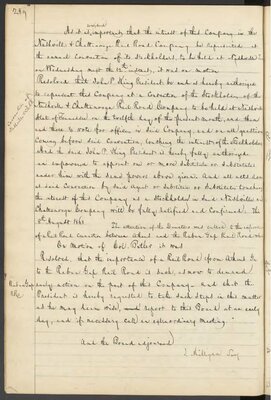 249
As it is important that the interest of this Company in the
Nashville & Chattanooga Rail Road Company be represented at
the annual convention of its Stockholders to be held at Nashville
on Wednesday next the 12th instant, it was on motion
Resolved that John P. King President be and is hereby authorized
to represent this Company at a Convention of the Stockholders of the
Nashville & Chattanooga Rail Road Company to be held at Nashville
State of Tennessee on the twelfth day of the present month, and then
and there to vote for officers in said Company, and on all questions
coming before said Convention, touching the interest of the Stockholders
And the said John P. King President is hereby fully authorized
and empowered to appoint one or more substitute or substitutes
under him with the same powers above given. And all acts done
at said Convention by said Agent or Substitute or Substitutes touching
the interest of this Company as a Stockholder in said Nashville &
Chattanooga Company will be fully ratified and Confirmed. The
6th August
The attention of the Directors was called to the
Rail Road connection between Atlanta and the Rabun Gap Rail Road
On motion of Col. Peters it was
Resolved that the importance of a Rail Road from Atlanta Ga
to the Rabun Gap Rail Road is such, as now to demand
Rabun Gap
early action on the part of this Company and that the
President is hereby requested to take such steps in this matter
as he may deem wise, and report to this Board at an early
day, and if necessary call an extraordinary meeting
And the Board adjourned